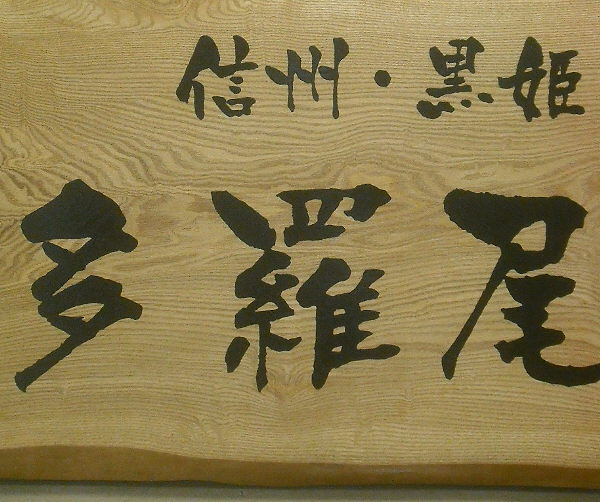 信州・黒姫
多羅尾